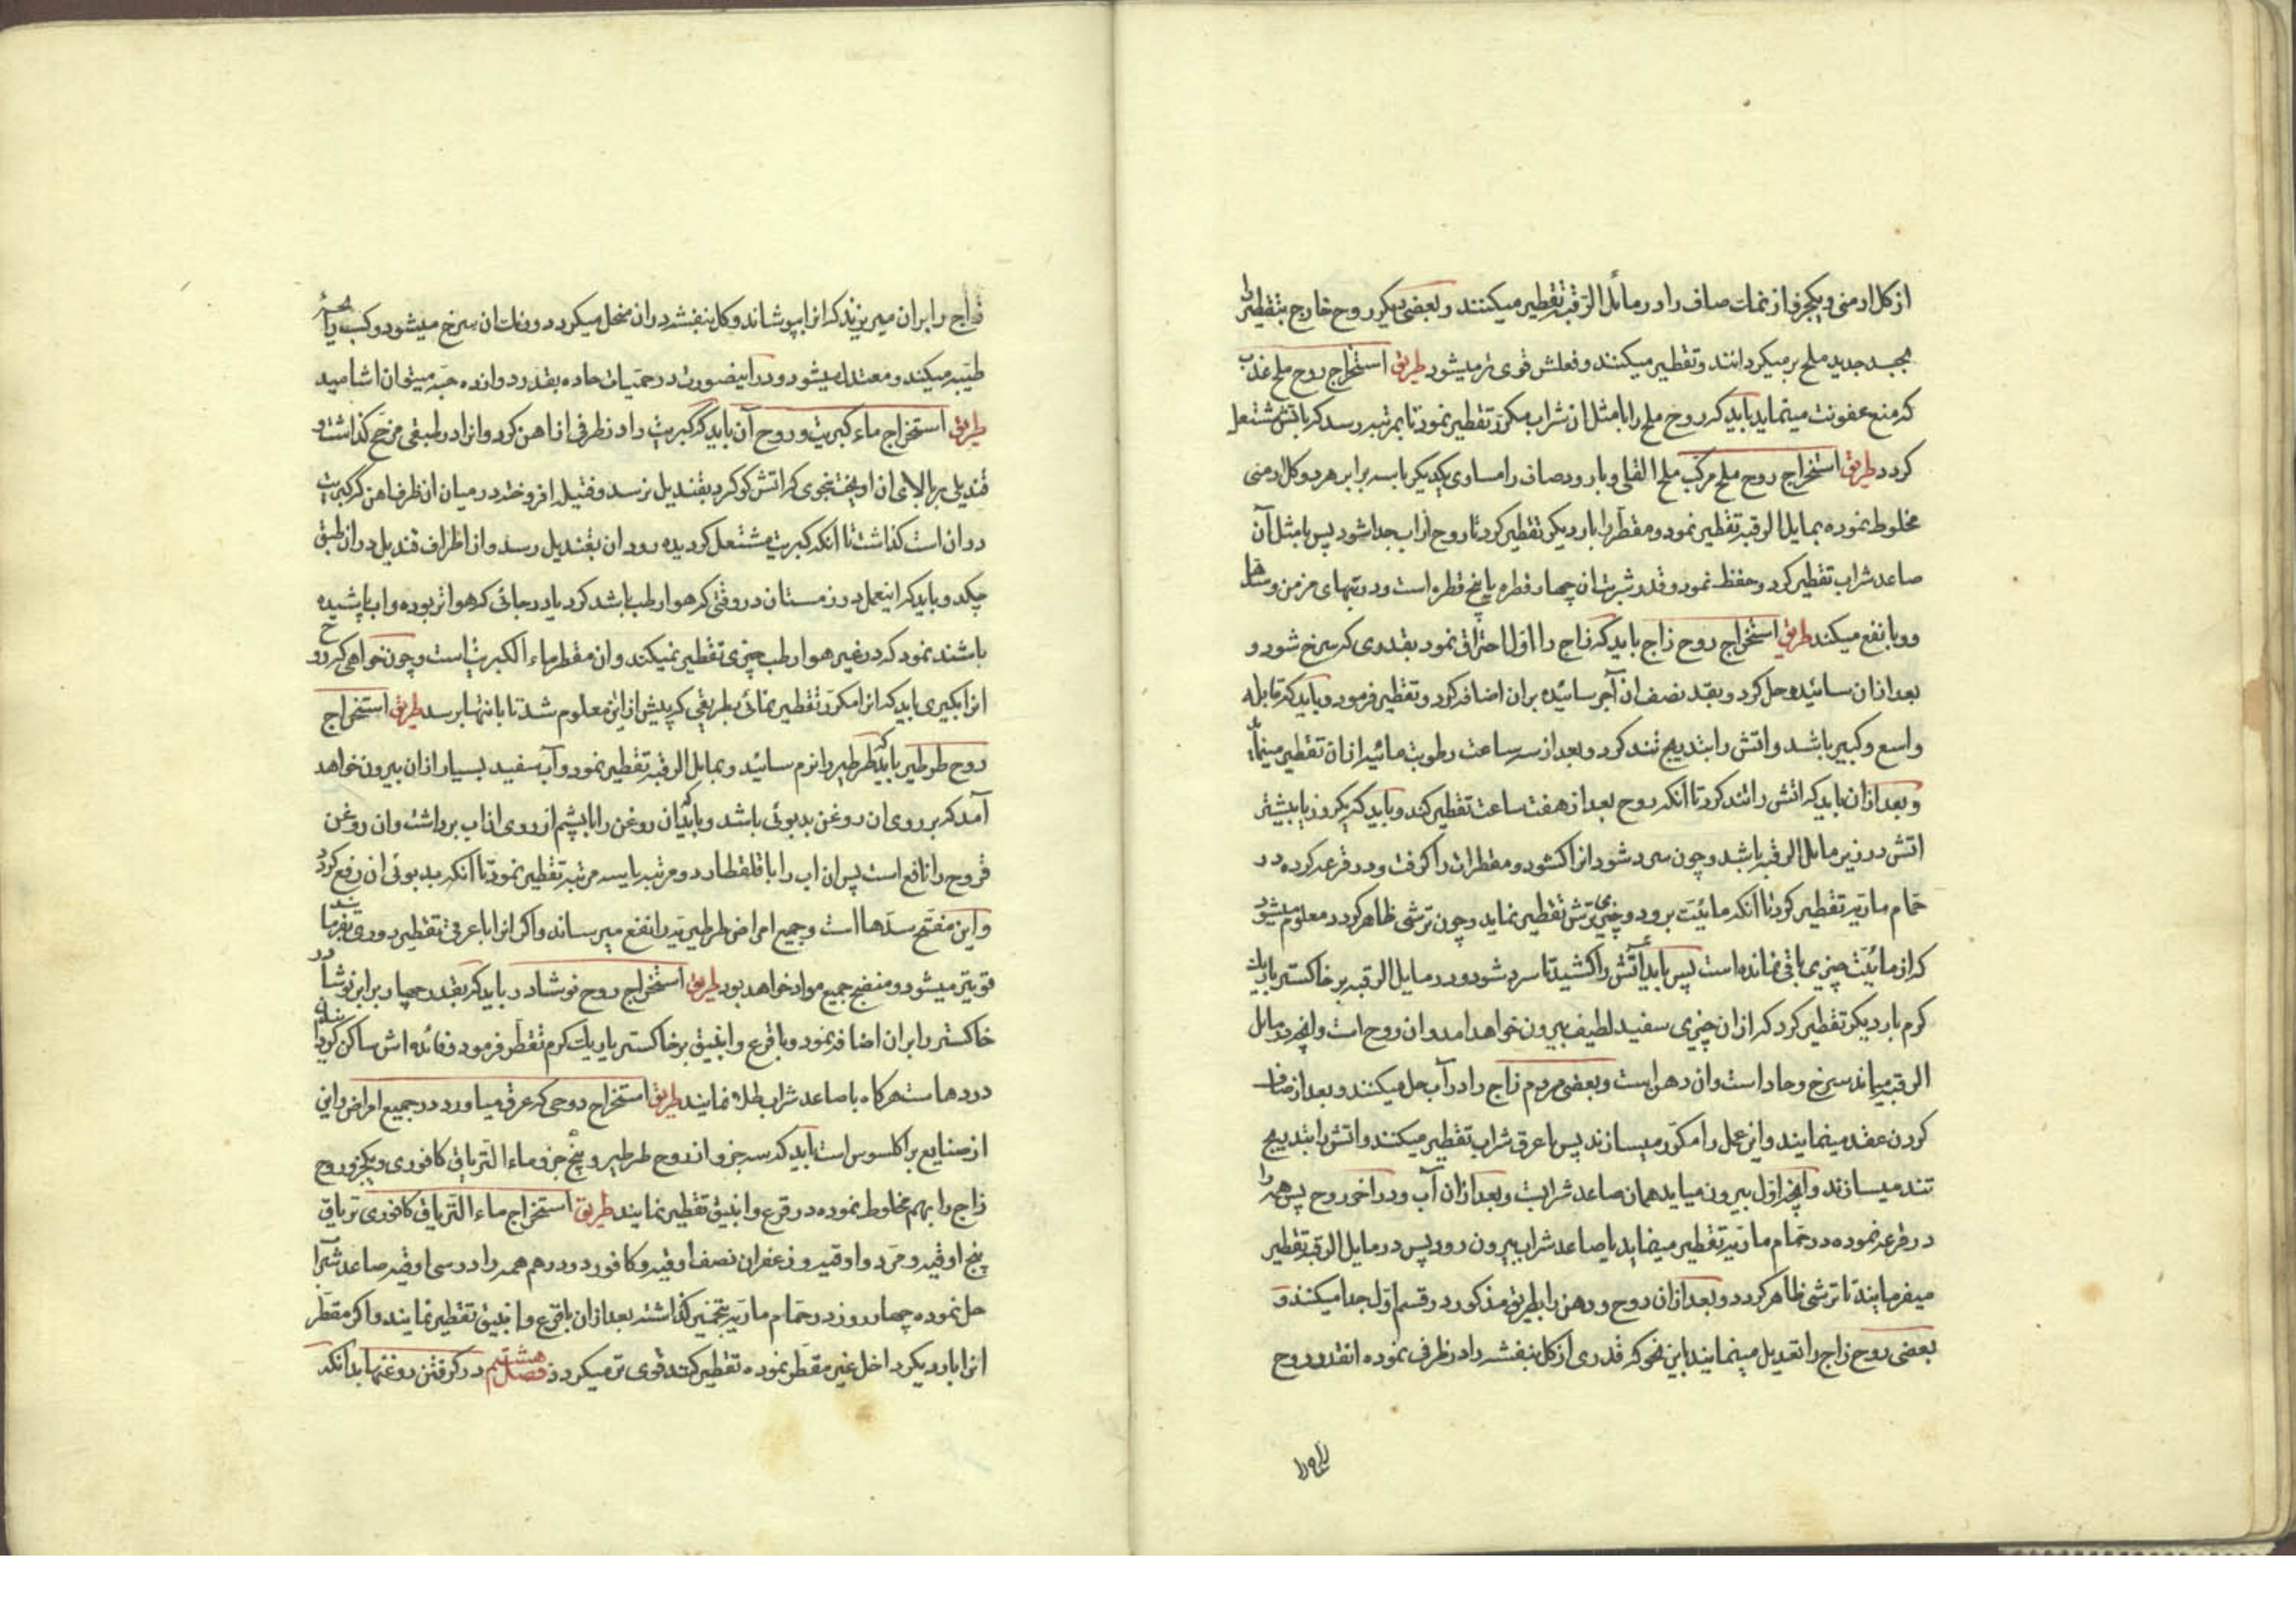 از کل ارمنی و یکجزو از نمات صاف را در مائل الرقبه تقطیر میکنند و بعضی دیگر روح خارج بتقطیر را
بجسد جدید ملح بر میکردانند و تقطیر میکنند و فعلش قوی تر میشود طریق استخراج روح ملح عذب
که منع عفونت مینماید باید که روح ملح را با مثل ان شراب مکرر تقطیر نمود تا بمرتبه رسد که باتش مشتعل
کردد طریق استخراج روح ملح مرکب ملح القلی و بارود صاف را مساوی یکدیکر با سه برابر هر دو کل ارمنی
مخلوط نموده بمایل الرقبه تقطیر نمود و مقطر را بار دیکر تقطیر کرد تا روح از اب جدا شود پس با مثل آن
صاعد شراب تقطیر کرد و حفظ نمود و قدر شربت ان چهار قطره یا پنج قطره است و در تبهای مزمن و
و وبا نفع میکند طریق استخراج روح زاج باید که زاج را اولا احتراق نمود بقدری که سرخ شود و
بعد از ان سائیده حل کرد و بقد نصف ان آجر سائیده بران اضافه کرد و تقطیر فرمود و باید که قابله
واسع و کبیر باشد و اتش را بتدریج تند کرد و بعد از سه ساعت رطوبت مائیه از ان تقطیر مینماید
و بعد از ان باید که اتش را تند کرد تا انکه روح بعد از هفت ساعت تقطیر کند و باید که یکروز یا بیشتر
اتش در زیر مایل الرقبه باشد و چون سرد شود انرا کشود و مقطرات را کرفت و در قرعه کرده در
حمام ماریه تقطیر کرد تا انکه مائیت برود و چیزی ترش تقطیر نماید و چون ترشی ظاهر کردد معلوم میشود
که از مائیت چیزی باقی نمانده است پس باید آتش را کشید تا سرد شود و در مایل الرقبه بر خاکستر یا ریک
کرم بار دیکر تقطیر کرد که از ان چیزی سفید لطیف بیرون خواهد امد و ان روح است و انچه در مایل
الرقبه میماند سرخ و حاد است و ان دهن است و بعضی مردم زاج را در آب حل میکنند و بعد از صاف
کردن عقد مینمایند و این عمل را مکرر میسازند پس با عرق شراب تقطیر میکنند و اتش را بتدریج
تند میسازند و انچه اول بیرون میاید همان صاعد شرابست و بعد از ان آب و در اخر روح پس همه را
در قرعه نموده در حمام ماریه تقطیر مینماید یا صاعد شراب بیرون رود پس در مایل الرقبه تقطیر
میفرمایند تا ترشی ظاهر کردد و بعد از ان روح و دهن را بطریق مذکور در قسم اول جدا میکنند و
بعضی روح زاج را تعدیل مینمایند باین نحو که قدری از کل بنفشه را در ظرفی نموده انقدر روح
زاج را بران میریزند که انرا بپوشاند و کل بنفشه دران منحل میکردد و نمات ان سرخ میشود و کسب رایحه
طیبه میکند و معتدل میشود و در اینصورت در حمیات حاده بقدر دوازده حبه میتوان اشامید
طریق استخراج ماء کبریت و روح آن باید که کبریت را در ظرفی از اهن کرد و انرا در طبقی مزجج کذاشت و
قندیلی بر بالای ان اویخت بنحوی که اتش کوکرد بقندیل نرسد و فتیله افروخته در میان ان ظرف اهن که کبریت
دران است کذاشت تا انکه کبریت مشتعل کردیده دود ان بقندیل رسد و از اطراف قندیل دران طبق
چکد و باید که اینعمل در زمستان در وقتی که هوا رطب باشد کرد یا در جائی که هوا تر بوده و اب پاشیده
باشند نمود که در غیر هوا رطب چیزی تقطیر نمیکند و ان مقطر ماء الکبریت است و چون خواهی که روح
انرا بکیری باید که انرا مکرر تقطیر نمائی بطریقی که پیش از این معلوم شد تا بانتها برسد طریق استخراج
روح طرطیر باید که طرطیر را نرم سائید و بمایل الرقبه تقطیر نمود و آب سفید بسیار از ان بیرون خواهد
آمد که بر روی ان روغن بدبوئی باشد و باید که ان روغن را با پشم از روی ان اب برداشت و ان روغن
قروح را نافع است پس ان اب را با قلقطار دو مرتبه یا سه مرتبه تقطیر نمود تا انکه بدبوئی ان رفع کردد
و این مفتح سدها است و جمیع امراض طرطیریه را نفع میرساند و اکر انرا با عرقی تقطیر دوری بفرمایند
قویتر میشود و منضج جمیع مواد خواهد بود طریق استخراج روح نوشادر باید که بقدر چهار برابر نوشادر
خاکستر را بران اضافه نمود و با قرع و انبیق بر خاکستر یا ریک کرم تقطر فرمود و فائده اش ساکن کردانیدن
دردهاست هر کاه با صاعد شراب طلا نمایند طریق استخراج روحی که عرق میاورد در جمیع امراض و این
از صنایع براکلسوس است باید که سه جزو از روح طرطیر و پنج جزو ماء التریاق کافوری و یکجزو روح
زاج را بهم مخلوط نموده در قرع و انبیق تقطیر نمایند طریق استخراج ماء التریاق کافوری تریاق
پنج اوقیه و مر دو اوقیه و زعفران نصف اوقیه و کافور دو درهم همه را در سی اوقیه صاعد شراب
حل نموده چهار روز در حمام ماریه بتخمیر کذاشته بعد از ان با قرع و انبیق تقطیر نمایند و اکر مقطر
انرا بار دیکر داخل غیر مقطر نموده تقطیر کنند قوی تر میکردد فصل هشتم در کرفتن روغنها بدانکه